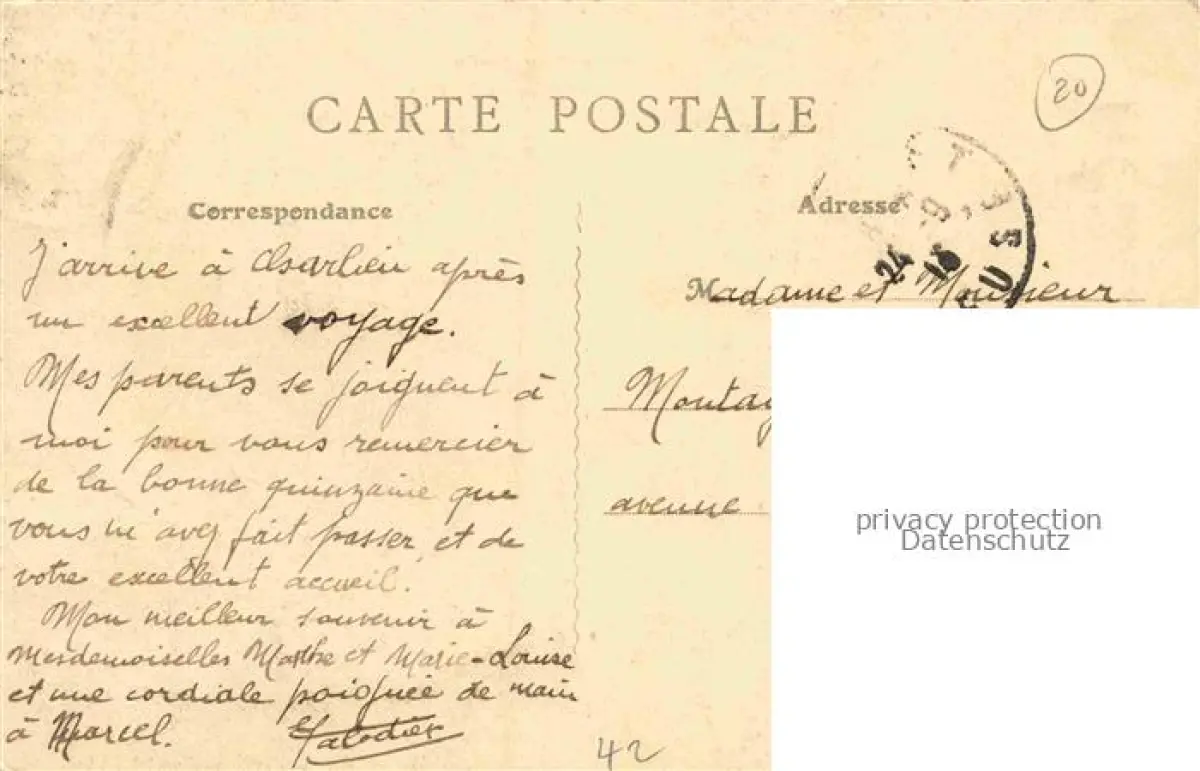 20
CARTE POSTALE
Correspondance
J'arrive à Charlieu après
un excellent voyage.
Mes parents se joignent à
moi pour vous remercier
de la bonne quinzaine que
vous m'avez fait passer, et de
votre excellent accueil.
Mon meilleur souvenir à
Mesdemoiselles Marthe et Marie-Louise
et une cordiale poignée de main
à Marcel.
42
Adresse
24
Madame et Monsieur
avenue
privacy protection
Datenschutz